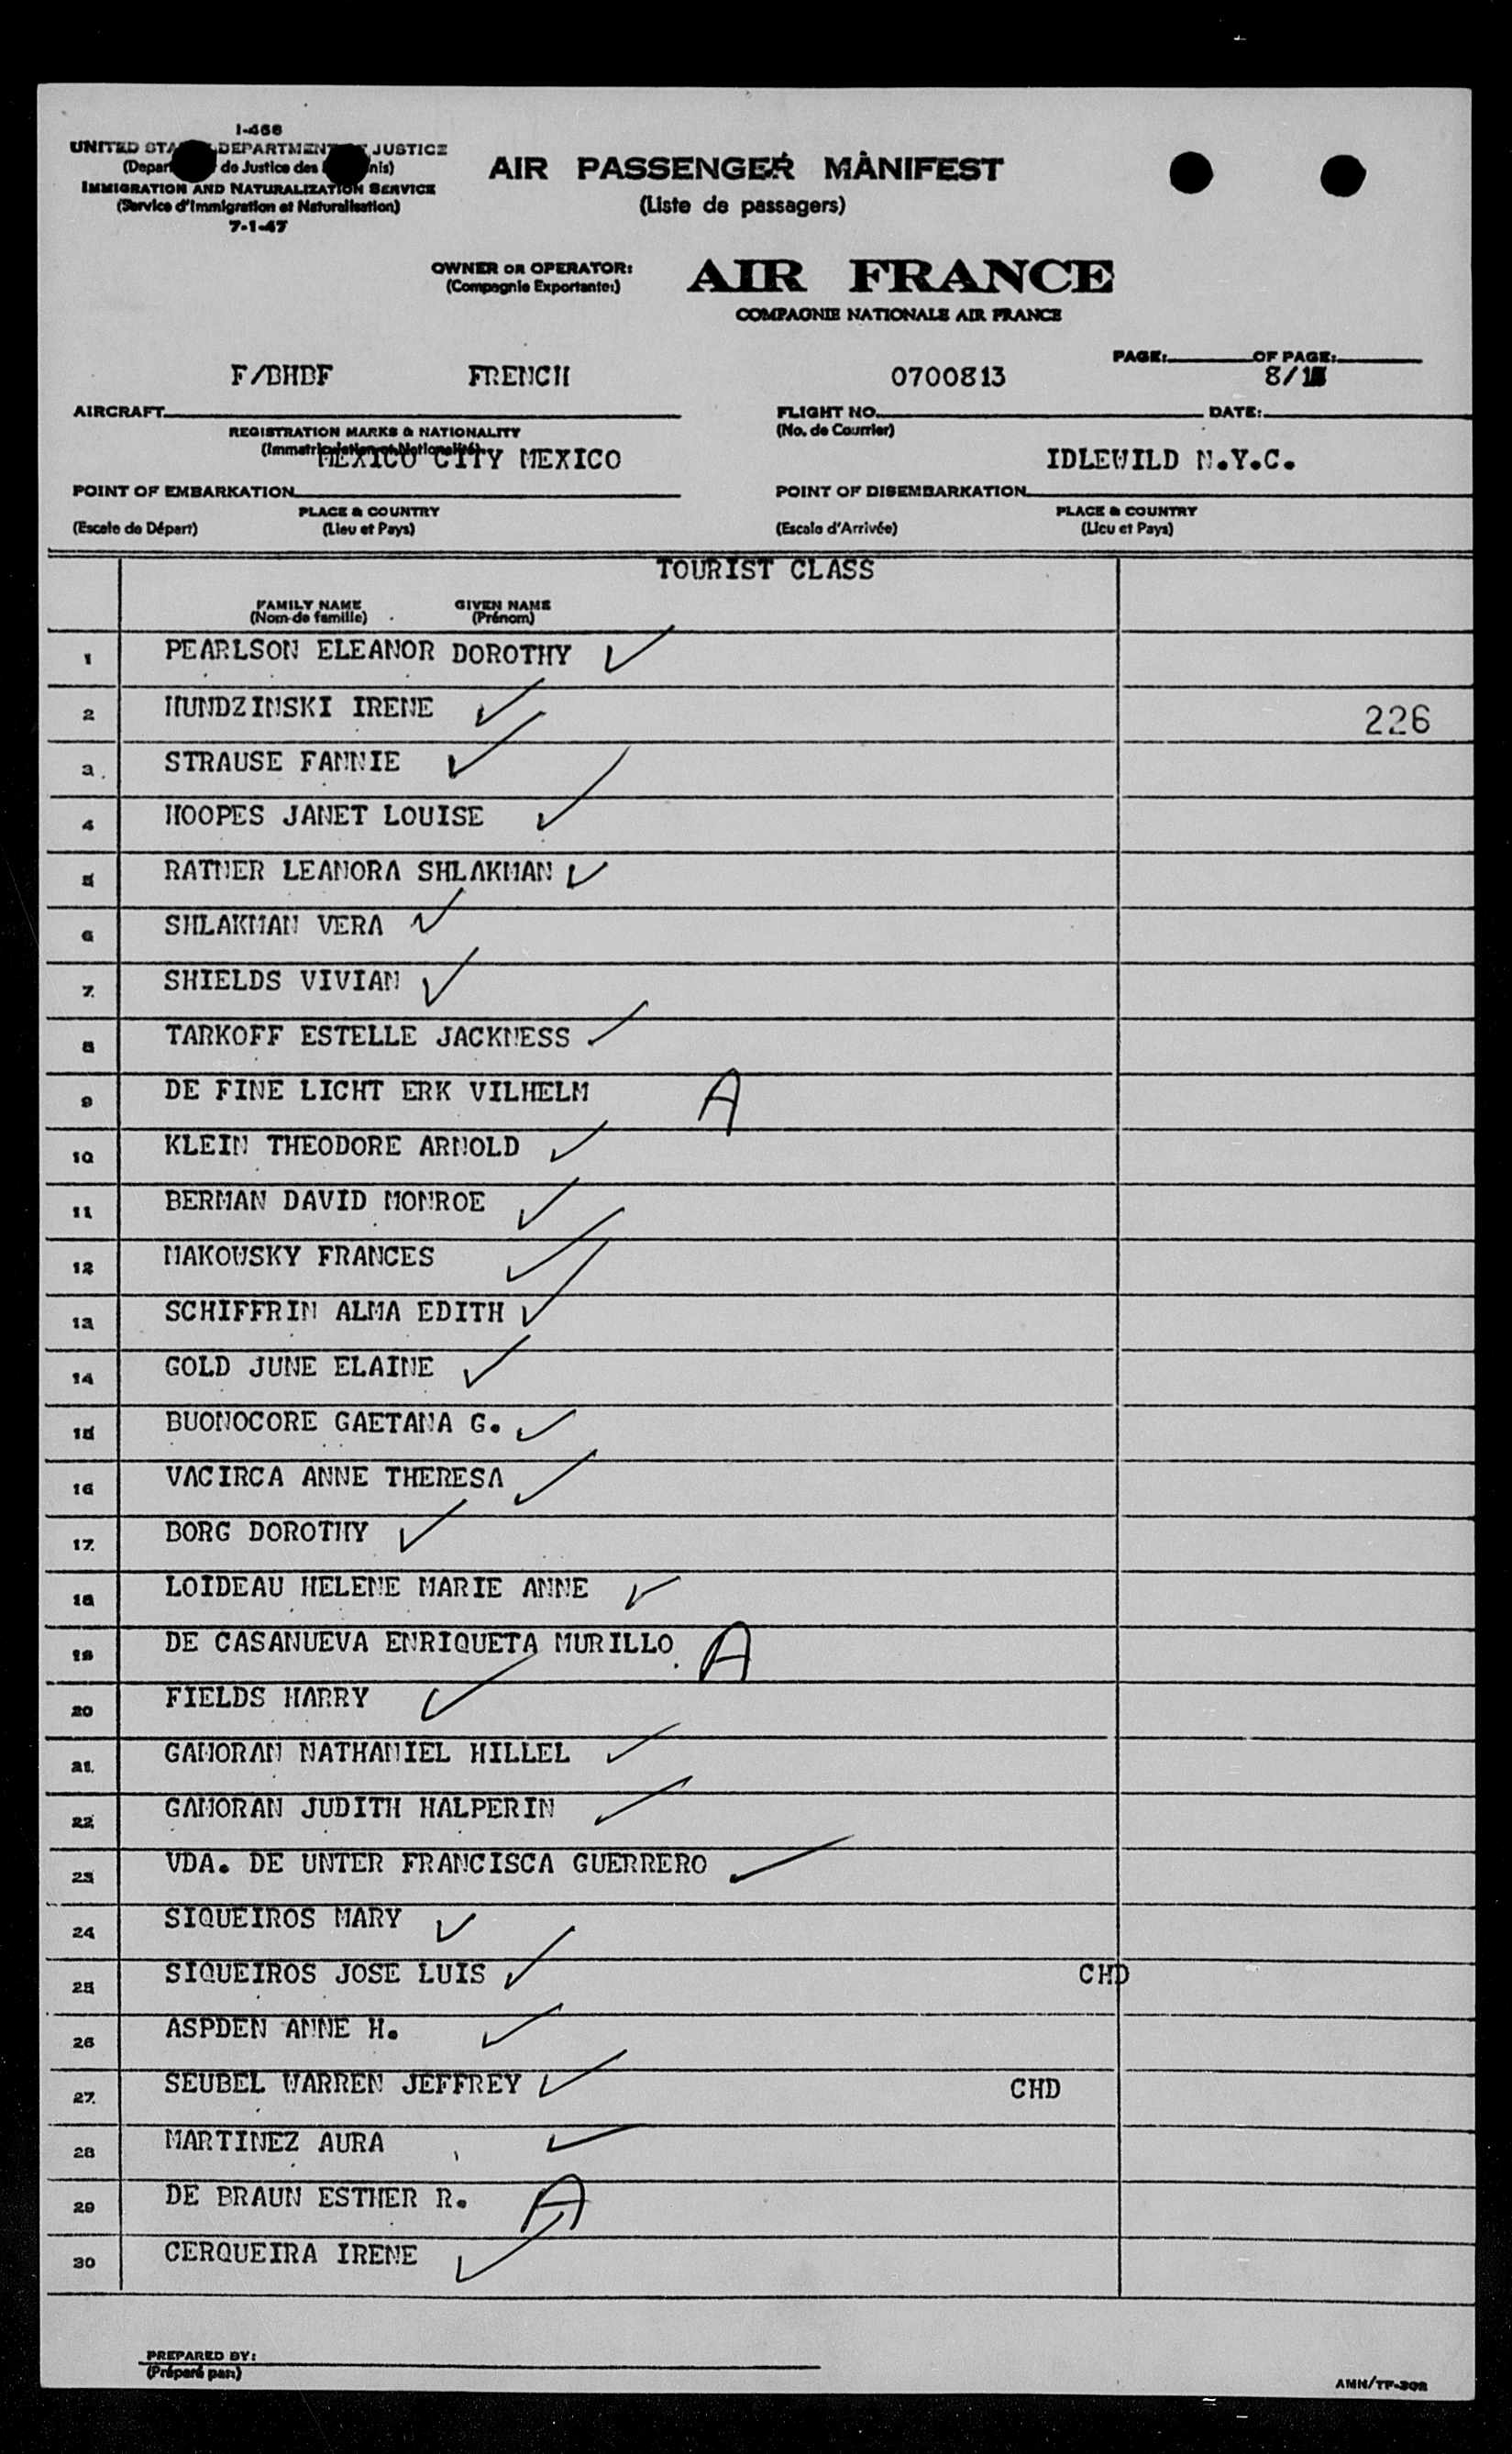 I-466
UNITED STA DEPARTMENT JUSTICE
(Depar de Justice des nis)
IMMIGRATION AND NATURALIZATION SERVICE
(Service d'Immigration et Naturalisation)
7-1-47
AIR PASSENGER MANIFEST
(Liste de passagers)
OWNER OR OPERATOR:
(Compagnie Exportante:)
AIR FRANCE
COMPAGNIE NATIONALE AIR FRANCE
PAGE: OF PAGE:
F/BHBF FRENCH 0700813 8/1
AIRCRAFT FLIGHT NO. DATE:
REGISTRATION MARKS & NATIONALITY (No. de Courrier)
(Immatriculation et Nationalité)
MEXICO CITY MEXICO IDLEWILD N.Y.C.
POINT OF EMBARKATION POINT OF DISEMBARKATION
PLACE & COUNTRY PLACE & COUNTRY
(Escale de Départ) (Lieu et Pays) (Escale d'Arrivée) (Lieu et Pays)
TOURIST CLASS
FAMILY NAME GIVEN NAME
(Nom de famille) (Prénom)
1 PEARLSON ELEANOR DOROTHY
2 HUNDZINSKI IRENE 226
3 STRAUSE FANNIE
4 HOOPES JANET LOUISE
5 RATNER LEANORA SHLAKMAN
6 SHLAKMAN VERA
7. SHIELDS VIVIAN
8 TARKOFF ESTELLE JACKNESS
9 DE FINE LICHT ERK VILHELM A
10 KLEIN THEODORE ARNOLD
11 BERMAN DAVID MONROE
12 MAKOWSKY FRANCES
13 SCHIFFRIN ALMA EDITH
14 GOLD JUNE ELAINE
15 BUONOCORE GAETANA G.
16 VACIRCA ANNE THERESA
17. BORG DOROTHY
18 LOIDEAU HELENE MARIE ANNE
19 DE CASANUEVA ENRIQUETA MURILLO A
20 FIELDS HARRY
21. GAMORAN NATHANIEL HILLEL
22 GAMORAN JUDITH HALPERIN
23 VDA. DE UNTER FRANCISCA GUERRERO
24 SIQUEIROS MARY
25 SIQUEIROS JOSE LUIS CHD
26 ASPDEN ANNE H.
27. SEUBEL WARREN JEFFREY CHD
28 MARTINEZ AURA
29 DE BRAUN ESTHER R. A
30 CERQUEIRA IRENE
PREPARED BY:
(Préparé par:)
AMN/TF-302